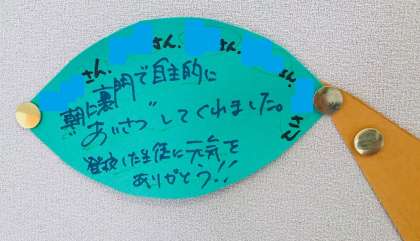 さん. さん. さん. さん. さん
朝に裏門で自主的に
"あいさつ"してくれました。
登校した生徒に元気を
ありがとう!!